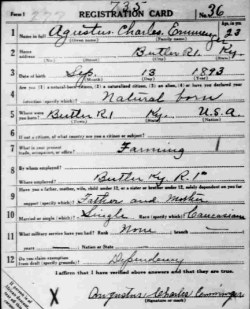 Form 1
735
REGISTRATION CARD
No. 36
1 Name in full Agustus Charles Emminger
(Given name) (Family name)
Age, in yrs. 23
2 Home address Butler R1 Ky.
3 Date of birth Sep. 13 1893
(Month) (Day) (Year)
4 Are you (1) a natural-born citizen, (2) a naturalized citizen, (3) an alien, (4) or have you declared your intention (specify which)? Natural born
5 Where were you born? Butler R1 Ky. U.S.A.
(Town) (State) (Nation)
6 If not a citizen, of what country are you a citizen or subject?
7 What is your present trade, occupation, or office? Farming
8 By whom employed?
Where employed? Butler Ky R 1
9 Have you a father, mother, wife, child under 12, or a sister or brother under 12, solely dependent on you for support (specify which)? Father and Mother
10 Married or single (which)? Single Race (specify which)? Caucasian
11 What military service have you had? Rank None branch
years Nation or State
12 Do you claim exemption from draft (specify grounds)? Dependency
I affirm that I have verified above answers and that they are true.
X Augustus Charles Emminger
(Signature or mark)